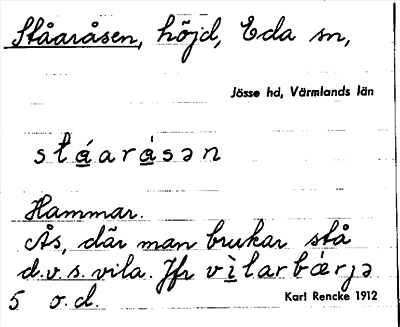 Ståaråsen, höjd, Eda sn,
Jösse hd, Värmlands län
stáarásən
Hammar.
Ås, där man brukar stå
d.v.s. vila. Jfr vìlarbǽrjə
5 o.d.
Karl Rencke 1912